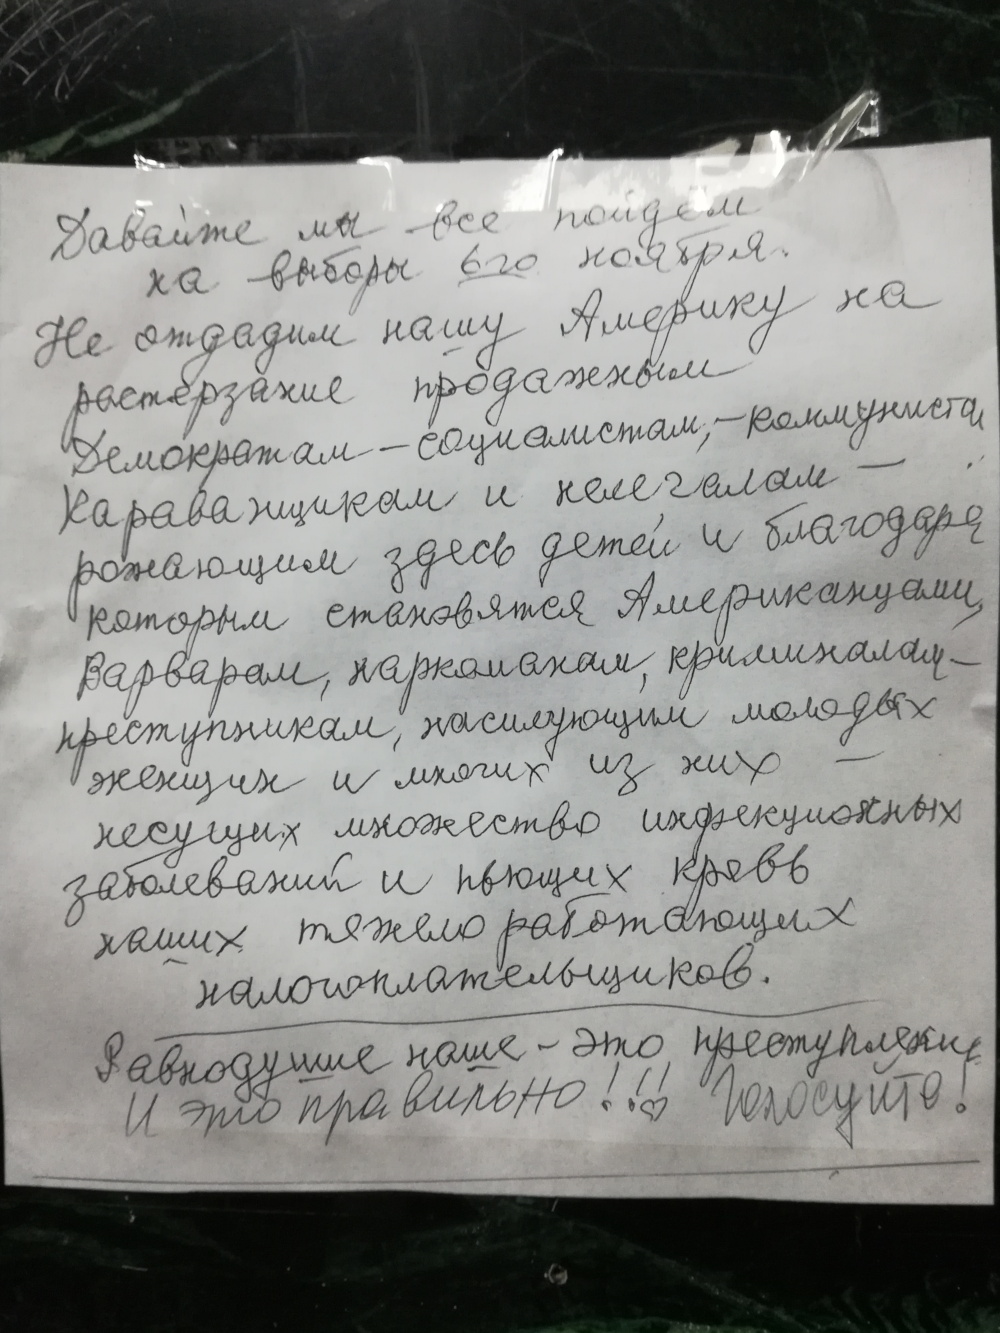 Давайте мы все пойдём
на выборы 6го ноября.
Не отдадим нашу Америку на
растерзание продажным
Демократам – социалистам, – коммуниста
Караванщикам и нелегалам –
рожающим здесь детей и благодаря
которым становятся Американцами,
Варварам, наркоманам, криминалам –
преступникам, насилующим молодых
женщин и многих из них –
несущих множество инфекционных
заболеваний и пьющих кровь
наших тяжело работающих
налогоплательщиков.
Равнодушие наше – это преступление
И это правильно!!! Голосуйте!